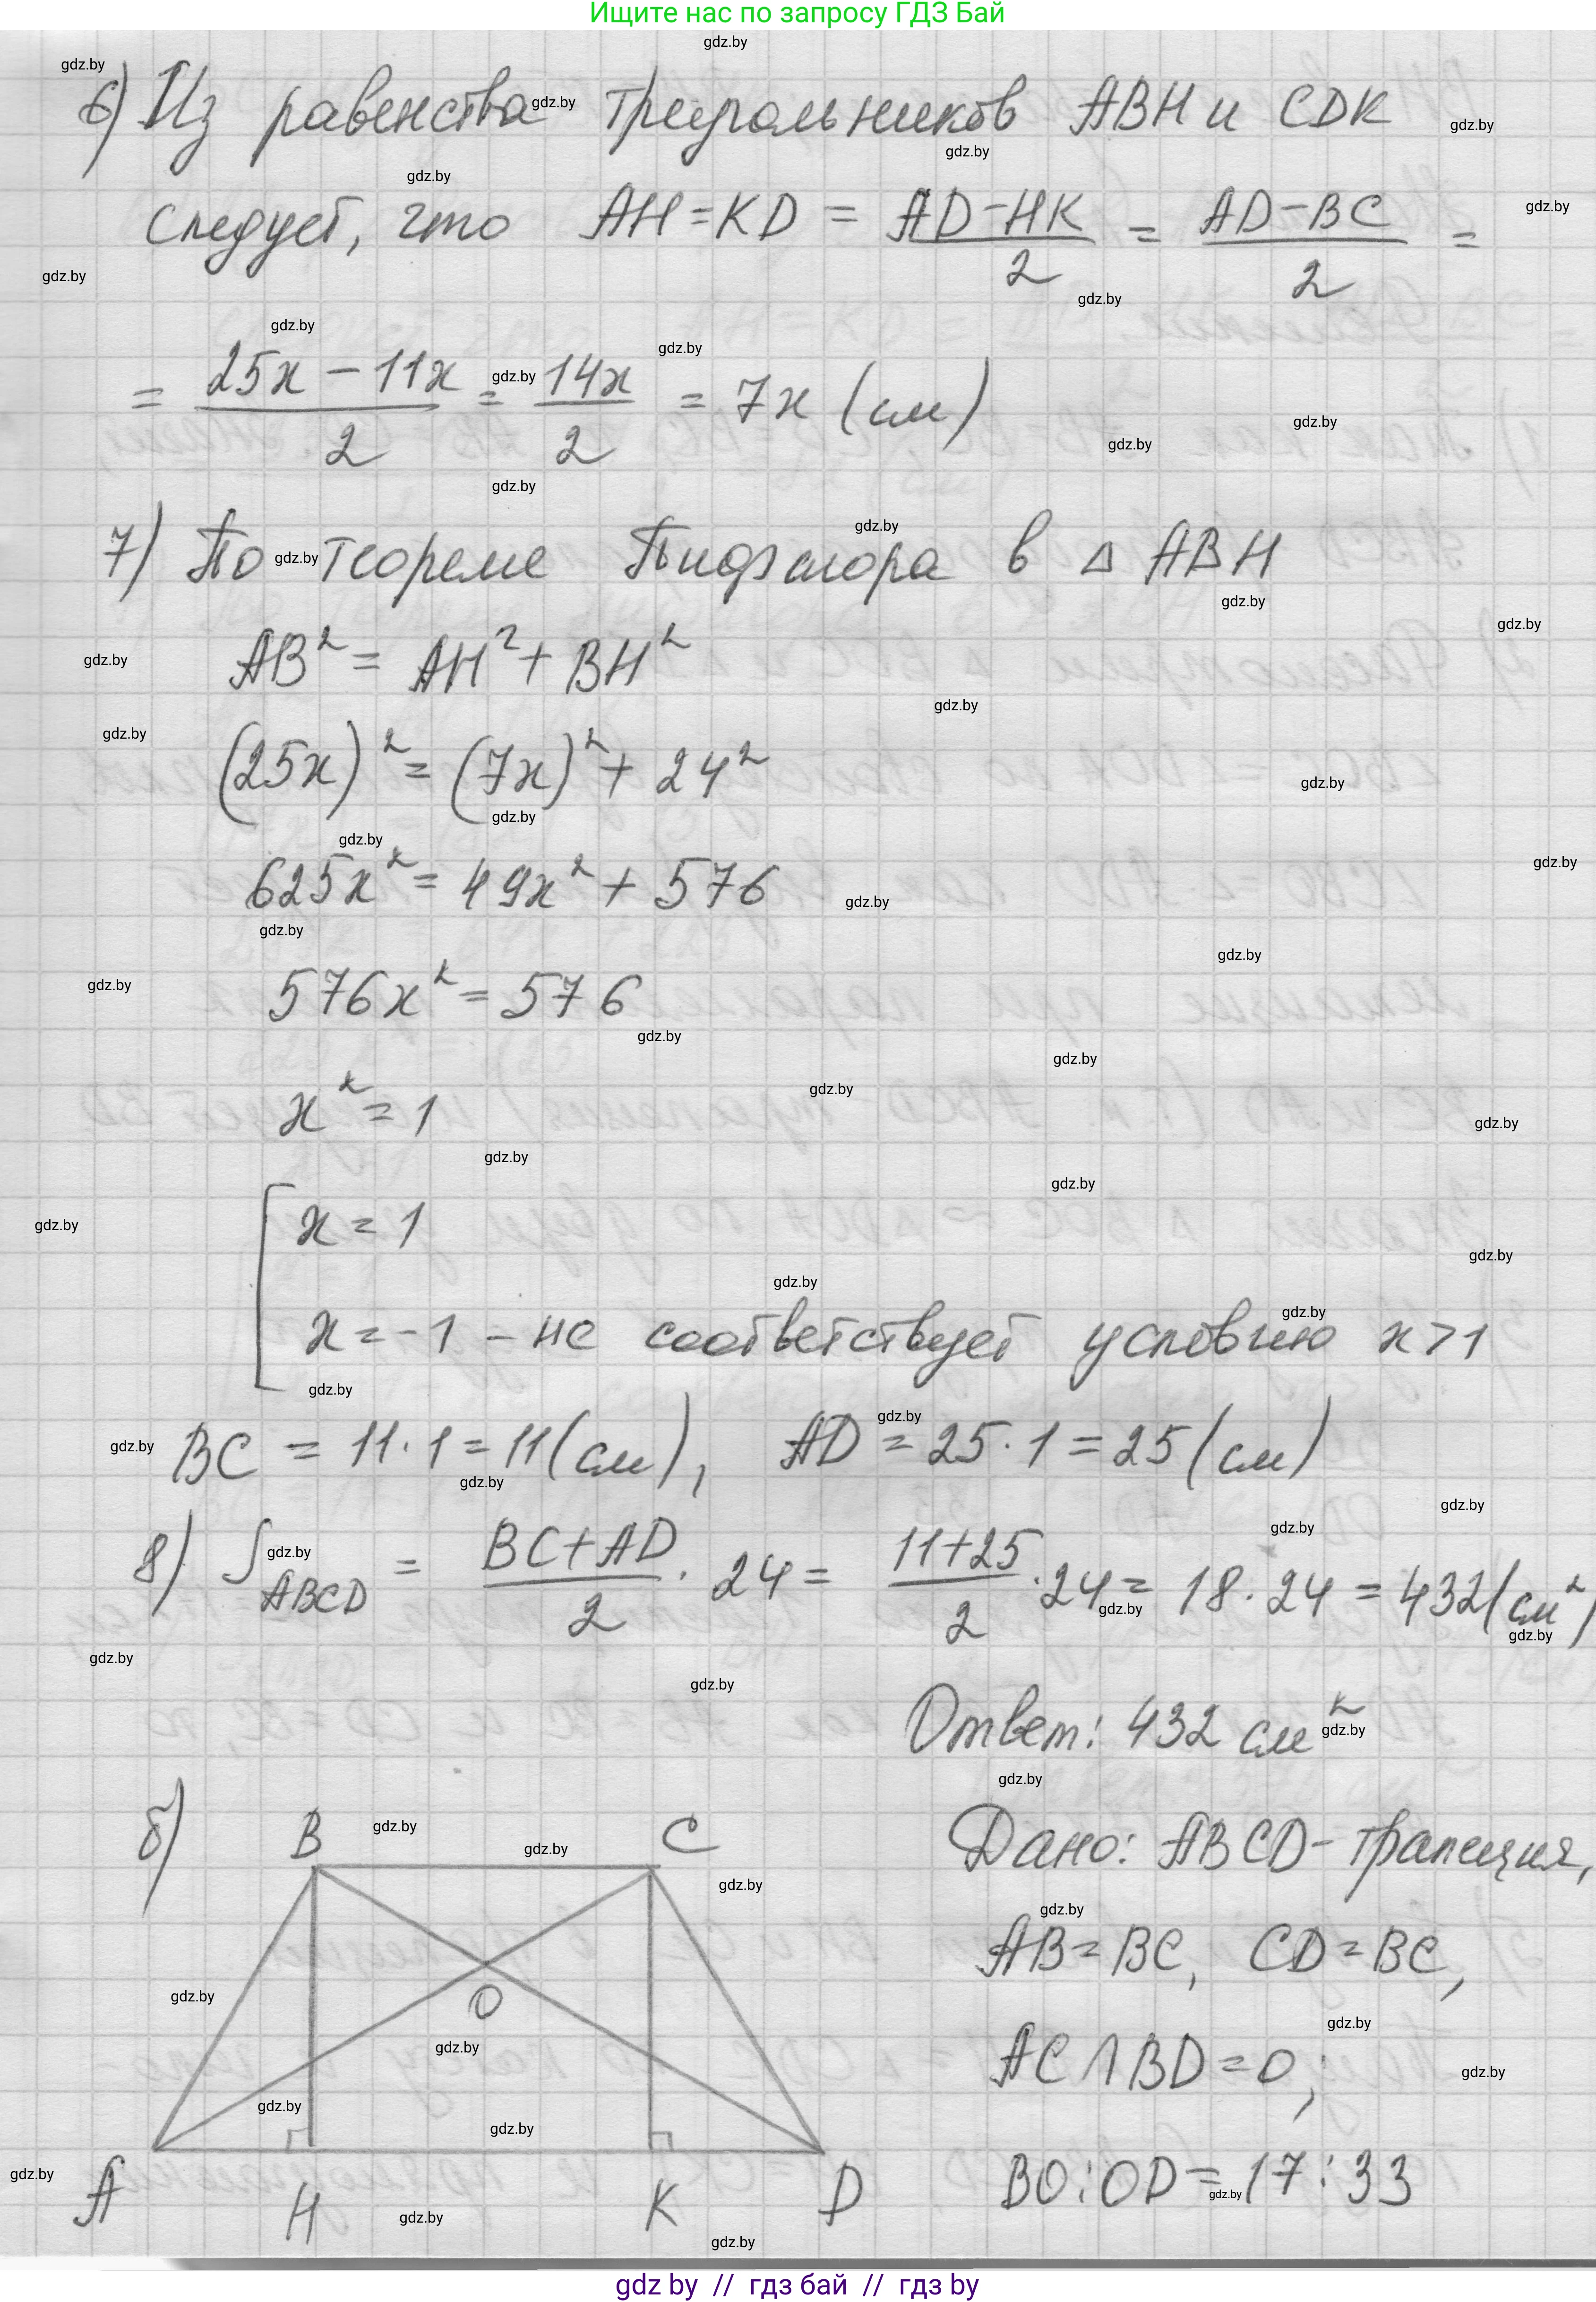 Ищите нас по запросу ГДЗ Бай
6) Из равенства треугольников ABH и CDK
следует, что AH = KD = (AD - HK)/2 = (AD - BC)/2 =
= (25x - 11x)/2 = 14x/2 = 7x (см)
7) По теореме Пифагора в △ ABH
AB² = AH² + BH²
(25x)² = (7x)² + 24²
625x² = 49x² + 576
576x² = 576
x² = 1
x = 1
x = -1 - не соответствует условию x > 1
BC = 11 · 1 = 11 (см), AD = 25 · 1 = 25 (см)
8) S ABCD = (BC + AD)/2 · 24 = (11 + 25)/2 · 24 = 18 · 24 = 432 (см²)
Ответ: 432 см²
б) B C
Дано: ABCD - трапеция,
AB = BC, CD = BC,
O
AC ∩ BD = O;
A H K D
BO : OD = 17 : 33
gdz by // гдз бай // гдз by